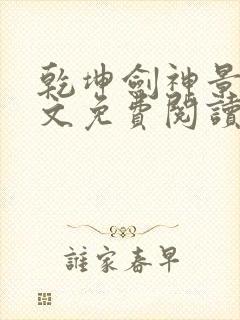 乾坤劍神景
文免費閱讀
誰家春早